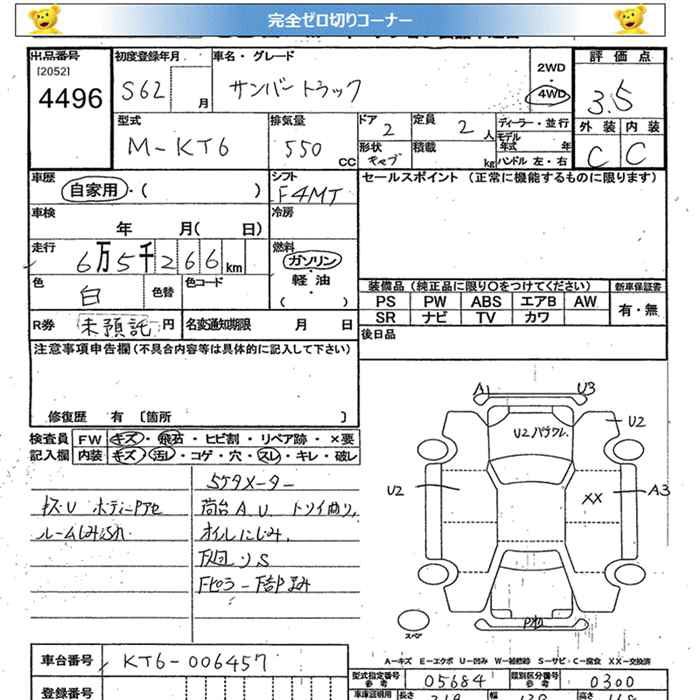 完全ゼロ切りコーナー
出品番号 初度登録年月 車名・グレード 2WD 評価点
[2052] 4496 S62 月 サンバートラック ・ 4WD 3.5
型式 排気量 ドア 定員 ディーラー・並行 外装 内装
M-KT6 550 CC 2 2 人 モデル年式 年 C C
形状 キャブ 積載 kg ハンドル 左・右
車歴 シフト セールスポイント (正常に機能するものに限ります)
自家用・( ) F4MT
車検 冷房
年 月( 日)
走行 燃料
6万5千266km ガソリン
・
軽油
( )
色 白 色替 色コード
装備品 (純正品に限り〇をつけてください) 新車保証書
PS PW ABS エアB AW 有・無
SR ナビ TV カワ
R券 未預託 円 名変通知期限 月 日
後日品
注意事項申告欄(不具合内容等は具体的に記入して下さい)
修復歴 有 〔箇所 〕
検査員 FW キズ・飛石・ヒビ割・リペア跡・×要
記入欄 内装 キズ・汚レ・コゲ・穴・スレ・キレ・破レ
A1 U3
U2
U2 パワレ.
U2
XX
A3
5ケタメーター
キズU ボディーPアセ 荷台A.U. トリイ曲り.
ルームしみSh オイルにじみ.
下回りS
Fピラー下部まみ
Pれ
スペア
A-キズ E-エクボ U-凹み W-補修跡 S-サビ C-腐食 XX-交換済
車台番号 KT6-006457
型式指定番号 参考 05684 類別区分番号 参考 0300
登録番号 車庫証明用 長さ 319 幅 139 高さ